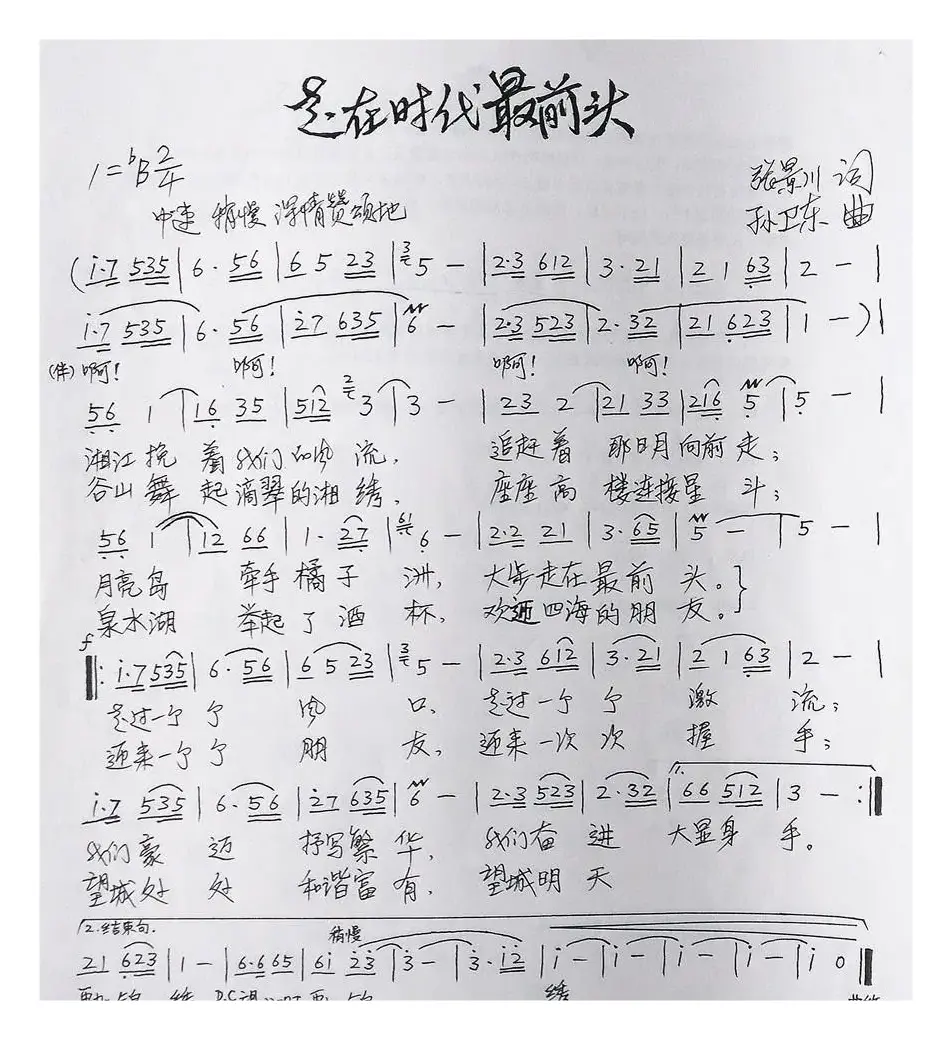 走在时代最前头
1=ᵇB 2/4
张景川 词
中速 稍慢 深情赞颂地
孙卫东 曲
(i·7 535 | 6·56 | 6 5 23 | 5 — | 2·3 612 | 3·21 | 2 1 63 | 2 — |
i·7 535 | 6·56 | 27 635 | 6 — | 2·3 523 | 2·32 | 21 623 | 1 —) |
(伴) 啊! 啊! 啊! 啊!
56 1 | 16 35 | 512 3 | 3 — | 23 2 | 21 33 | 216 5 | 5 — |
湘江挽 着我们的风 流, 追赶着 那日月向前 走;
谷山舞 起滴翠的湘 绣, 座座高 楼连接星 斗;
56 1 | 12 66 | 1·27 | 6 — | 2·2 21 | 3·65 | 5 — | 5 — |
月亮岛 牵手橘子 洲, 大步走在最前 头。}
泉水湖 举起了酒 杯, 欢迎四海的朋 友。
f
‖: i·7 535 | 6·56 | 6 5 23 | 5 — | 2·3 612 | 3·21 | 2 1 63 | 2 — |
走过一个 个 风 口, 走过一个 个 激 流;
迎来一个 个 朋 友, 迎来一次 次 握 手;
i·7 535 | 6·56 | 27 635 | 6 — | 2·3 523 | 2·32 | 1. 66 512 | 3 — :‖
我们豪 迈 抒写繁 华, 我们奋 进 大显身 手。
望城处 处 和谐富 有, 望城明 天
2.结束句. 稍慢
21 623 | 1 — | 6·6 65 | 6i 23 | 3 — | 3·i2 | i — | i — | i — | i — | i 0 ‖
绣